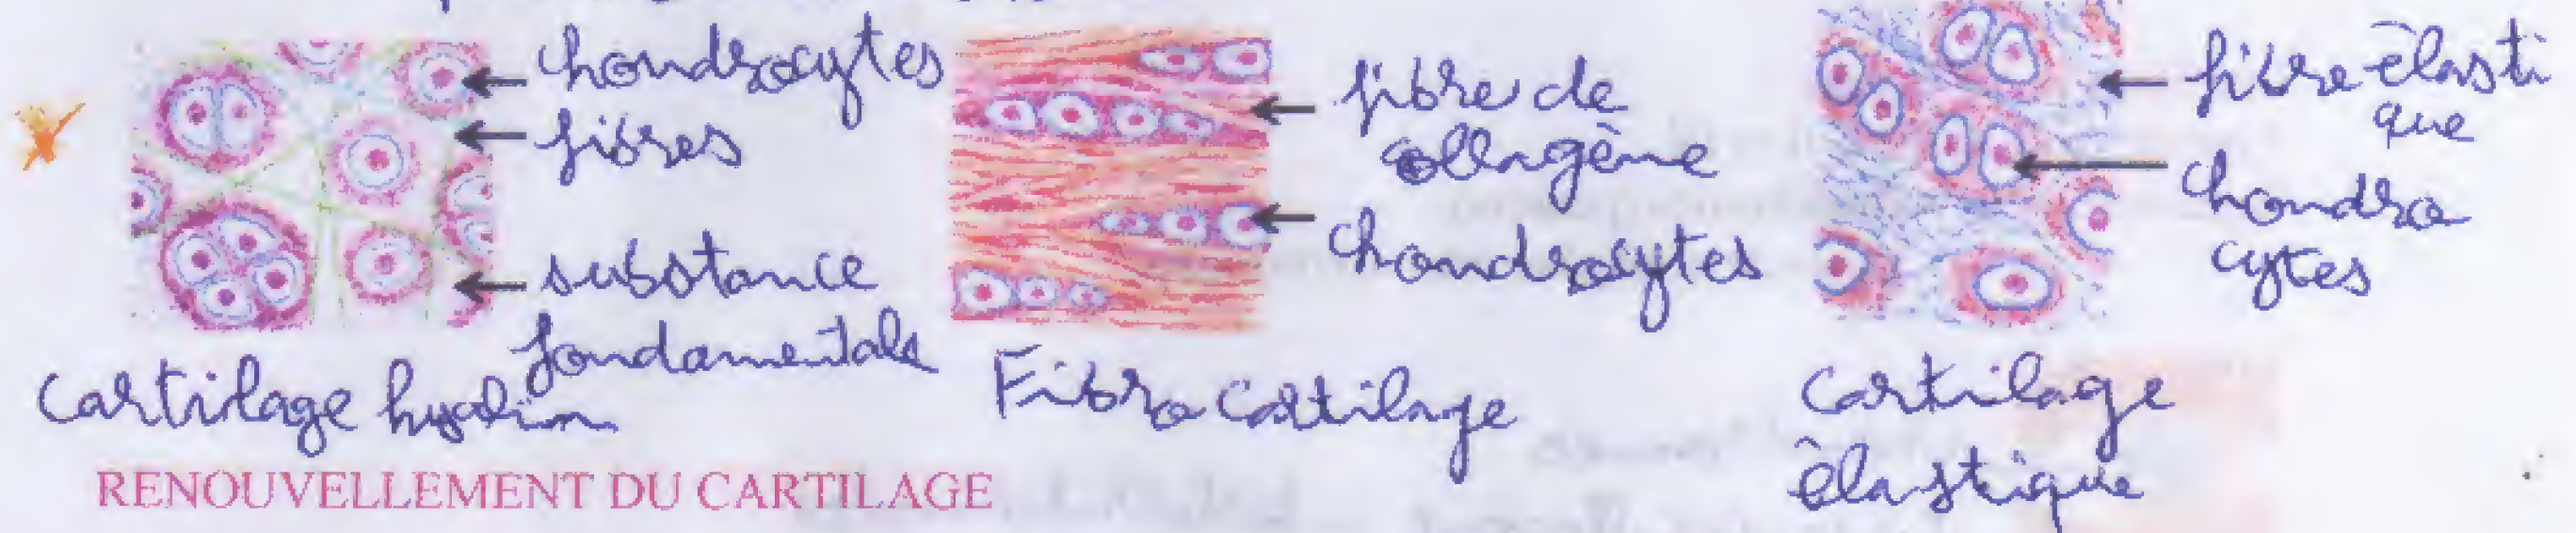 chondrocytes
fibres
substance
fondamentale
Cartilage hyalin
fibre de
collagène
chondrocytes
Fibro cartilage
fibre élasti
que
chondro
cytes
Cartilage
élastique
RENOUVELLEMENT DU CARTILAGE